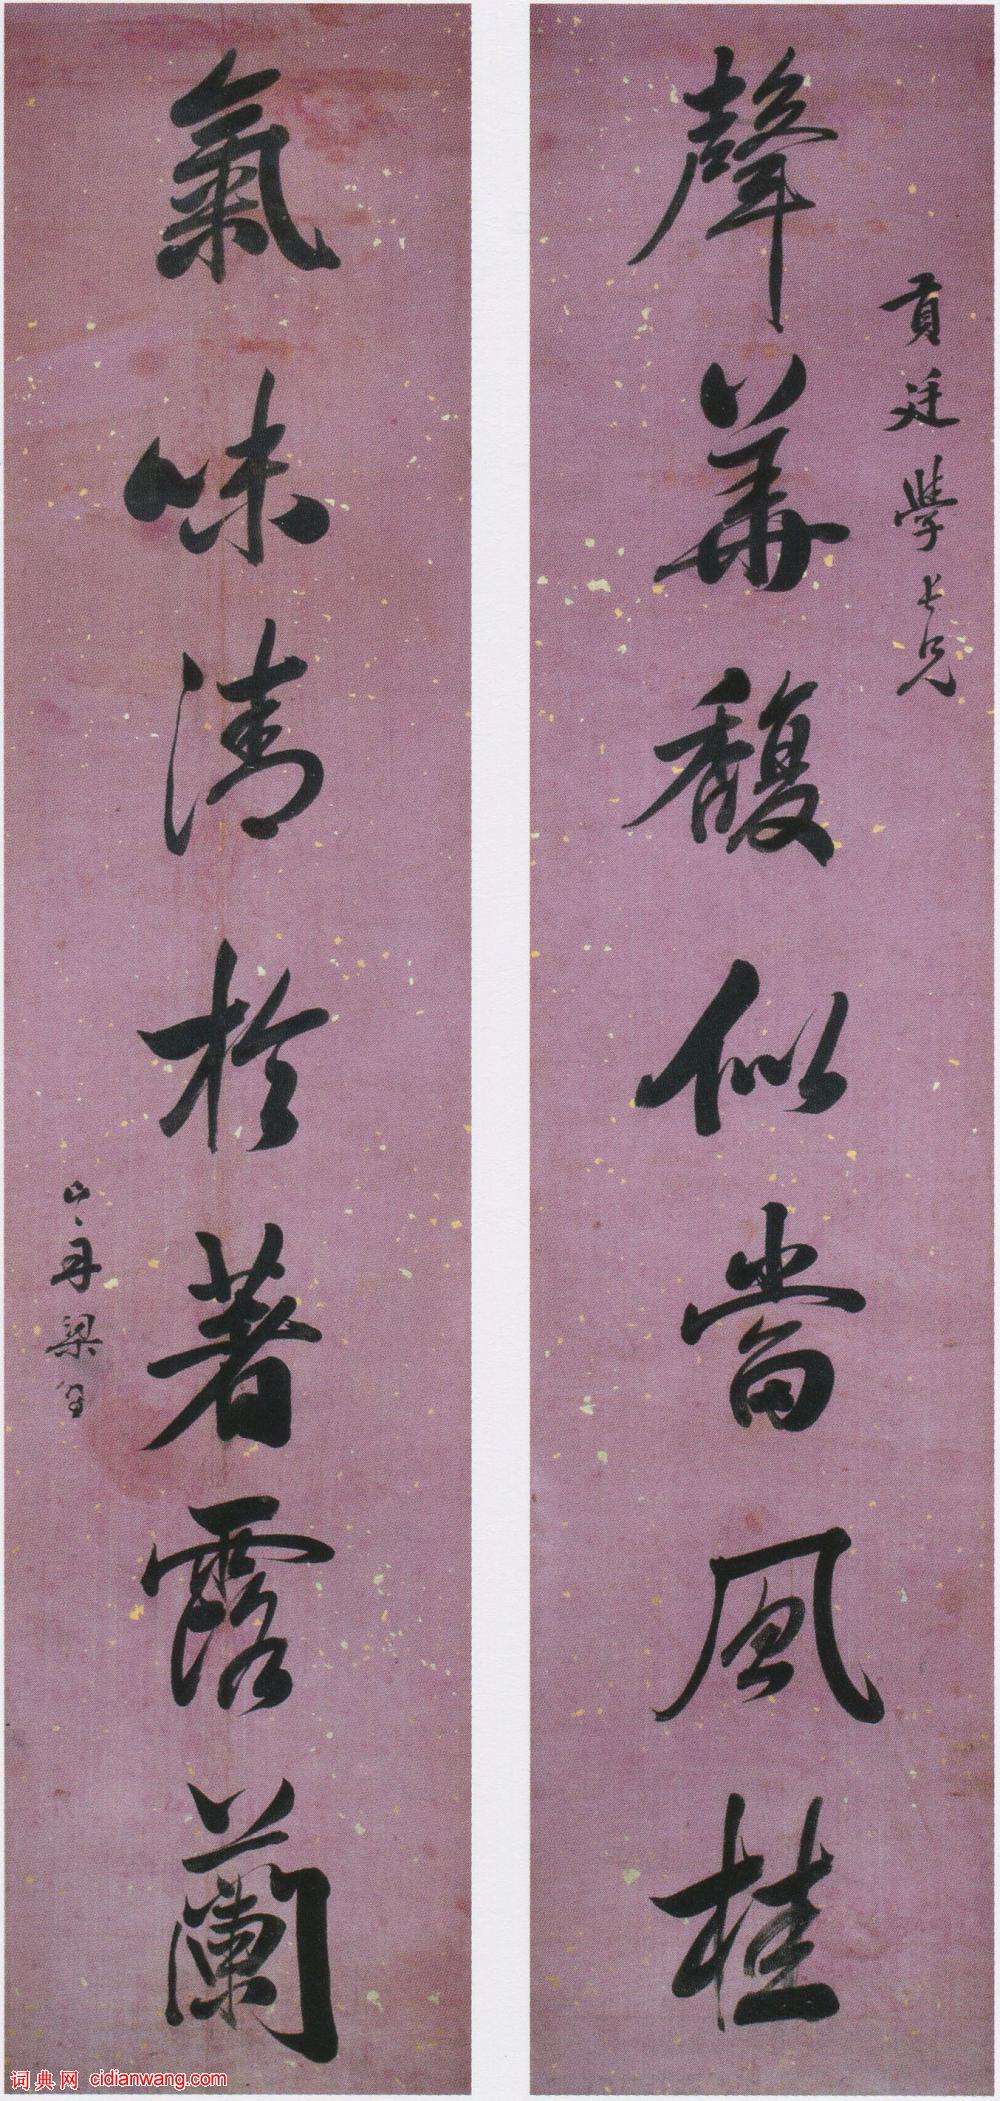 貢廷學長兄
聲華馥似當風桂
氣味清於著露蘭
山舟梁同書
词典网 cidianwang.com